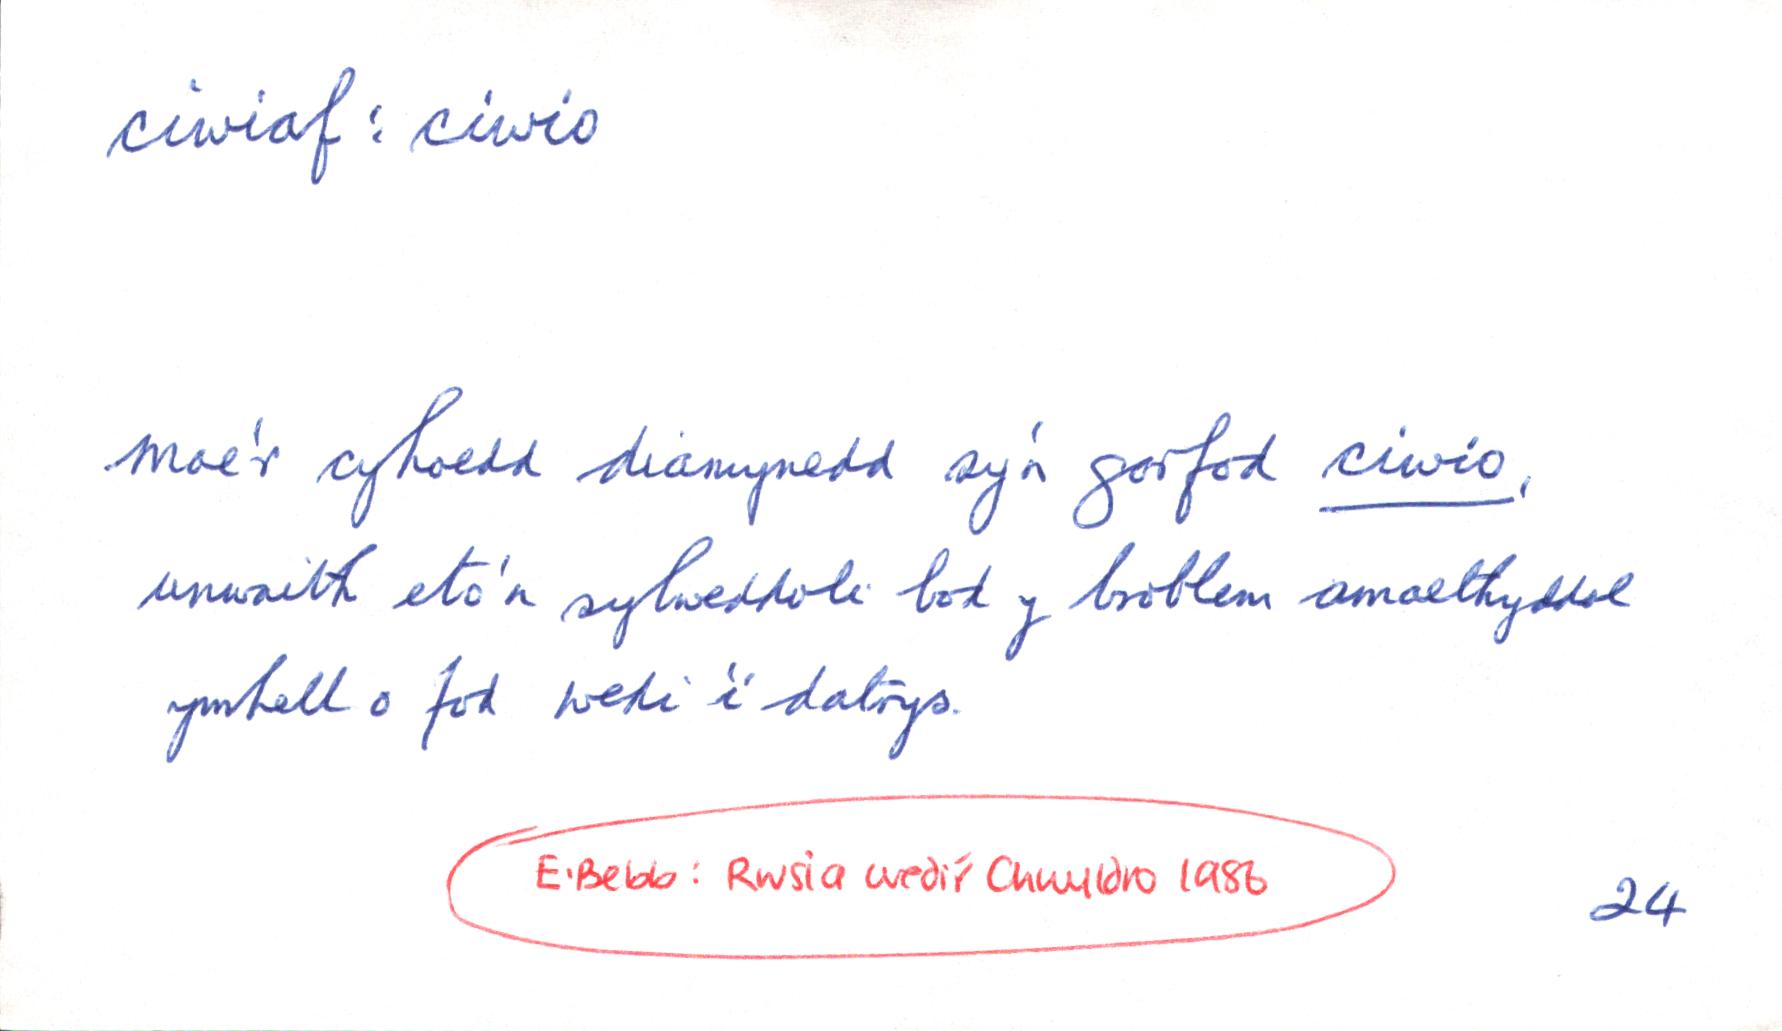 ciwiaf : ciwio
Mae'r cyhoedd diamynedd sy'n gorfod ciwio,
unwaith eto'n sylweddoli bod y broblem amaethyddol
ymhell o fod wedi'i datrys.
E. Bebb : Rwsia wedi'r Chwyldro 1986
24